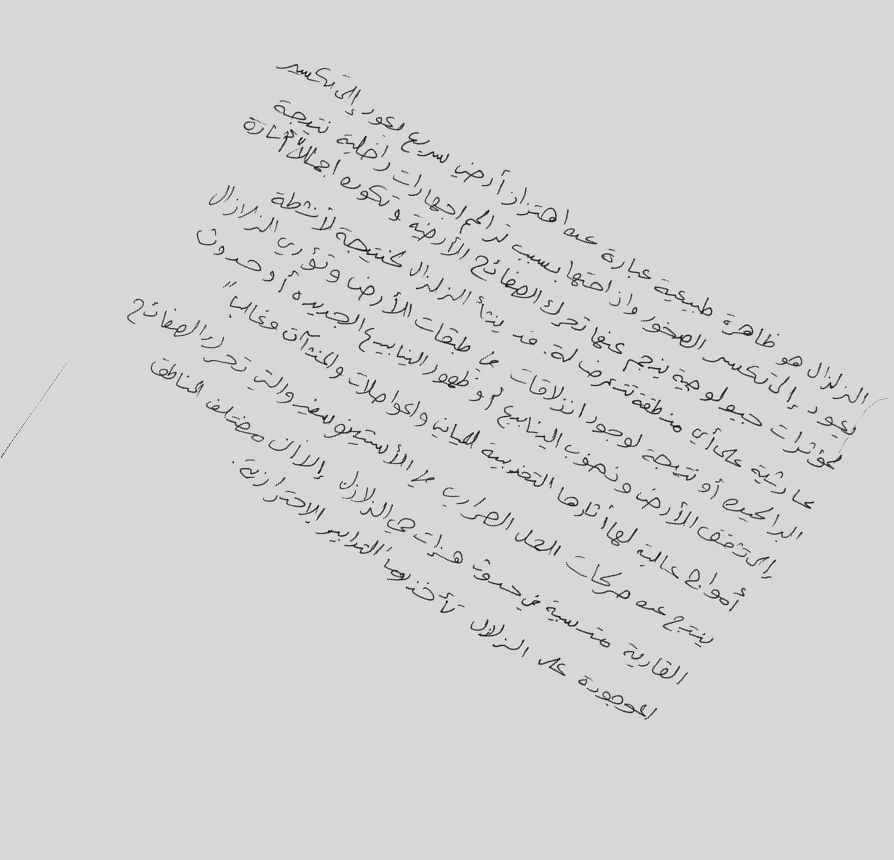 الزلزال هو ظاهرة طبيعية عبارة عن اهتزاز أرضي سريع يعود إلى تكسر
يعود إلى تكسر الصخور وازاحتها بسبب تراكم اجهادات داخلية نتيجة
لمؤثرات جيولوجية ينجم عنها تحرك الصفائح الأرضية وتكون اجمالاً
على أي منطقة تتعرض له. قد ينشأ الزلزال كنتيجة لأنشطة
البراكين أو نتيجة لوجود انزلاقات في طبقات الأرض وتؤدي الزلازال
إلى تشقق الأرض ونضوب الينابيع أو ظهور الينابيع الجديدة أو حدوث
أمواج عالية لها أثارها التخريبية للمباني والمواصلات والمنشآت وغالباً
ينتج عن حركات الحمل الحراري في الأستينوسفير والتي تحرك الصفائح
القارية متسببة في حدوث هزات هي الزلازل إلا أن مختلف المناطق
الموجودة على الزلازل تأخذ دوما التدابير الاحترازية.